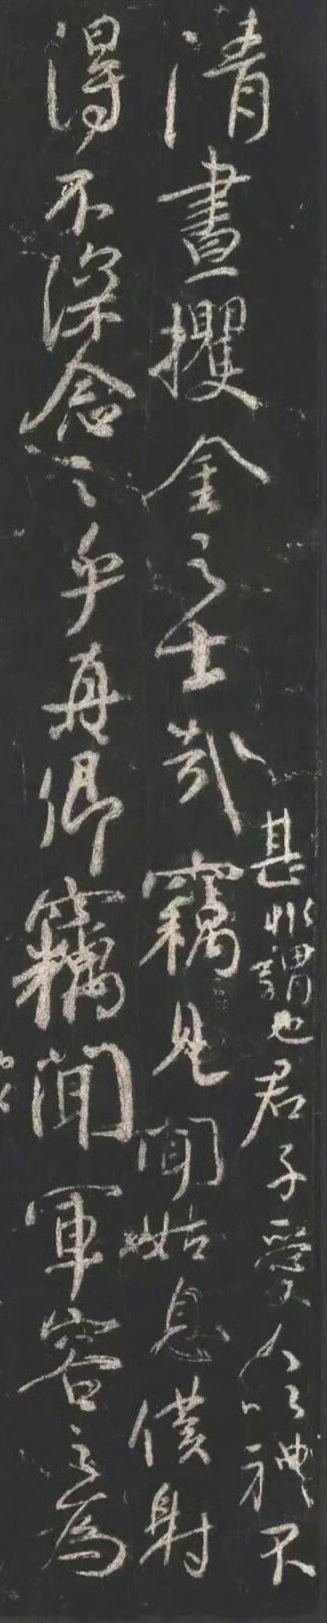 清晝攫金之士哉
甚非謂也君子愛人以禮不
竊見聞姑息僕射
得不深念之乎真卿竊聞軍容之為